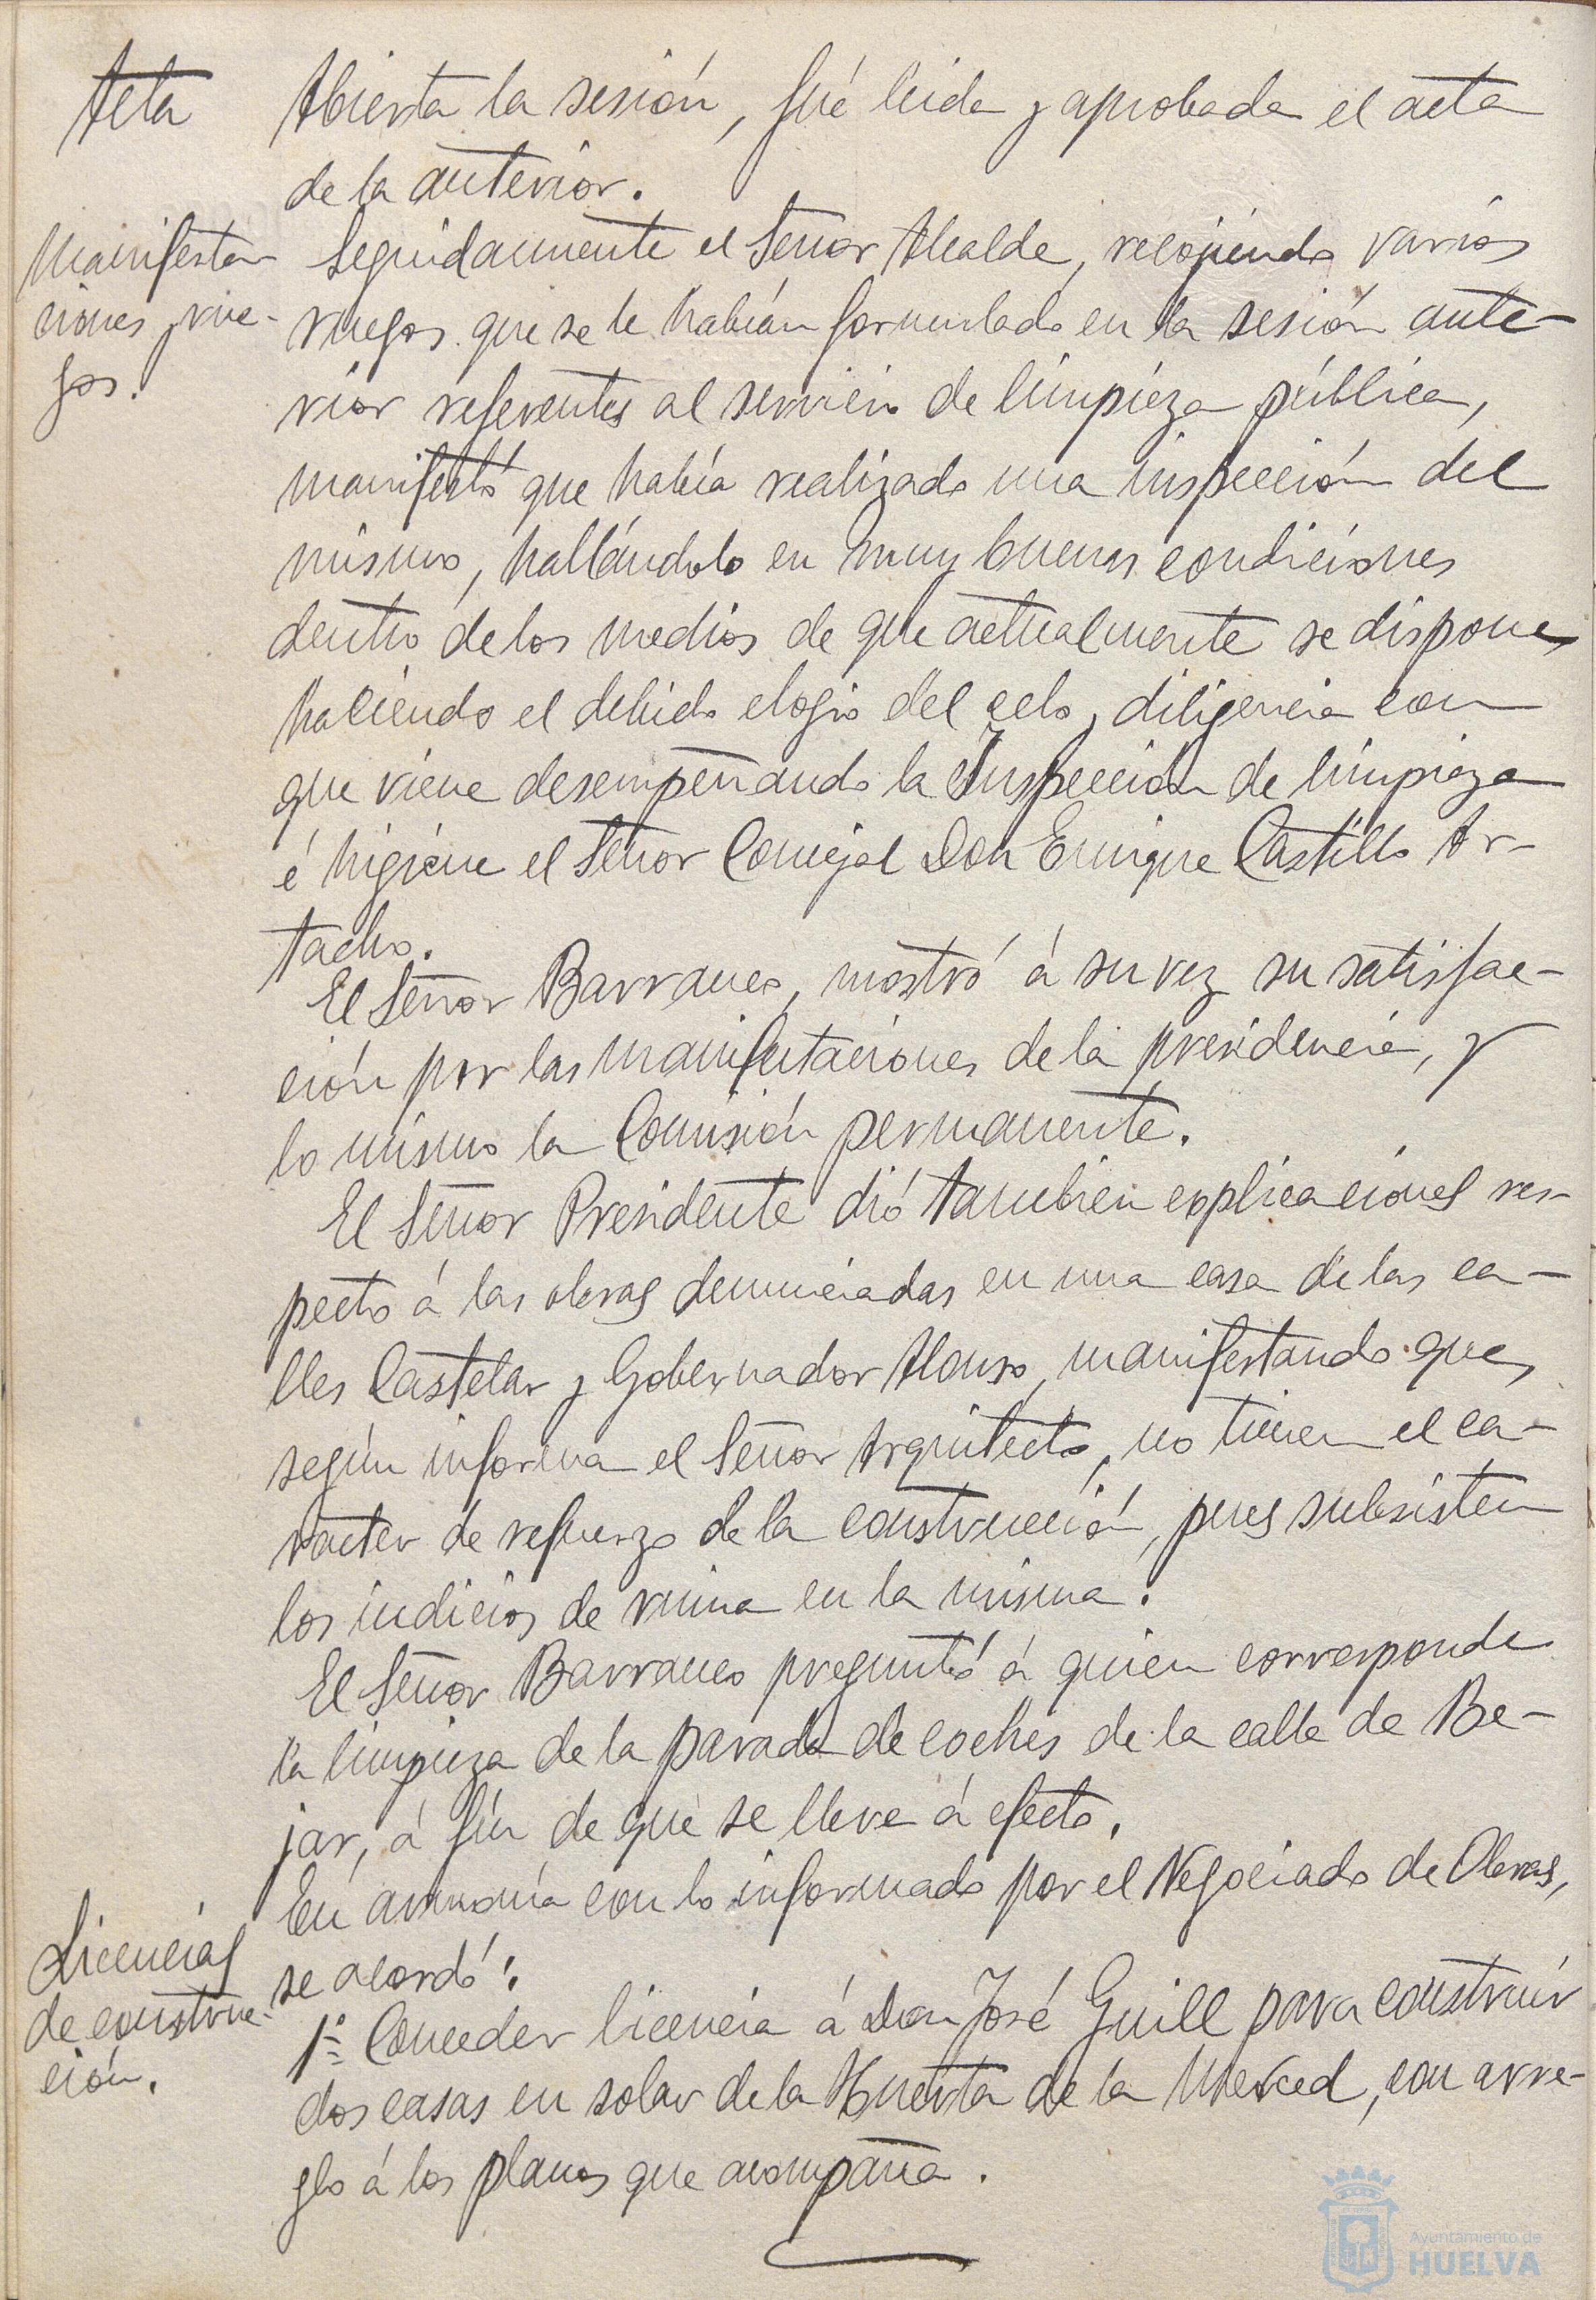 Acta
Abierta la sesión, fué leida y aprobada el acta
de la anterior.
Manifesta-
ciones y rue-
gos.
Seguidamente el Señor Alcalde, recojiendo varios
ruegos que se le habían formulado en la sesión ante-
rior referentes al servicio de limpieza pública,
manifestó que había realizado una inspección del
mismo, hallándolo en muy buenas condiciones
dentro de los medios de que actualmente se dispone,
haciendo el debido elogio del celo y diligencia con
que viene desempeñando la Inspección de limpieza
é higiene el Señor Concejal Don Enrique Castillo Ar-
tacho.
El Señor Barranco, mostró á su vez su satisfac-
ción por las manifestaciones de la presidencia, y
lo mismo la Comisión permanente.
El Señor Presidente dió tambien explicaciones res-
pecto á las obras denunciadas en una casa de las ca-
lles Castelar y Gobernador Alonso, manifestando que,
según informa el Señor Arquitecto, no tienen el ca-
racter de refuerzo de la construcción, pues subsisten
los indicios de ruina en la misma.
El Señor Barranco preguntó á quien corresponde
la limpieza de la parada de coches de la calle de Be-
jar, á fin de que se lleve á efecto.
Licencias
de construc-
ción.
En armonía con lo informado por el Negociado de Obras,
se acordó:
1º Conceder licencia á Don José Guill para construir
dos casas en solar de la Huerta de la Merced, con arre-
glo á los planos que acompaña.
Ayuntamiento de
HUELVA